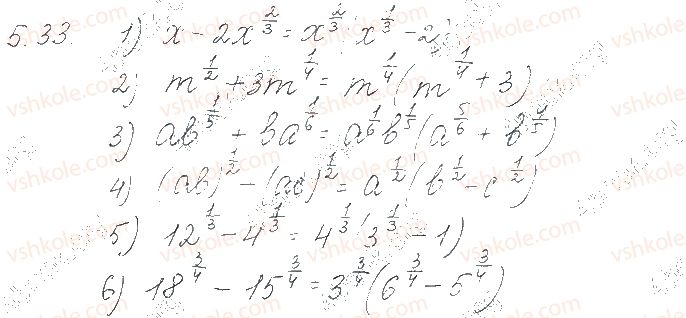 5.33. 1) x - 2x^{2/3} = x^{2/3}(x^{1/3} - 2);
2) m^{1/2} + 3m^{1/4} = m^{1/4}(m^{1/4} + 3)
3) ab^{1/5} + ba^{1/6} = a^{1/6}b^{1/5}(a^{5/6} + b^{4/5})
4) (ab)^{1/2} - (ac)^{1/2} = a^{1/2}(b^{1/2} - c^{1/2})
5) 12^{1/3} - 4^{1/3} = 4^{1/3}(3^{1/3} - 1)
6) 18^{3/4} - 15^{3/4} = 3^{3/4}(6^{3/4} - 5^{3/4})
vshkole.com